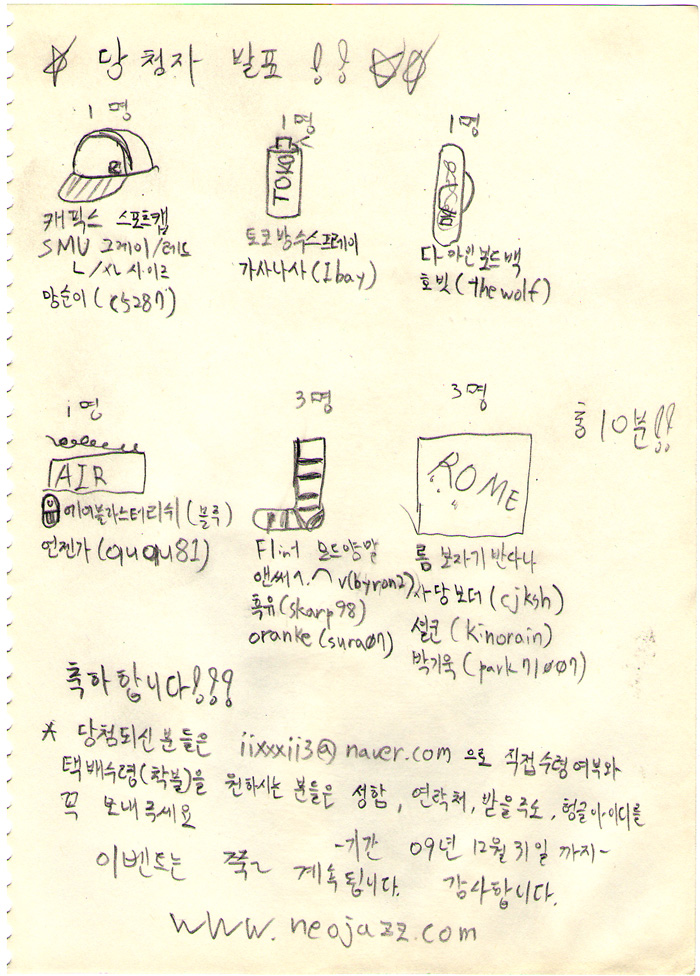 당첨자 발표 !!
1명
1명
1명
TOKO
캐픽스 스포츠캡
SMU 그레이/레드
L/XL 사이즈
망순이 (cs287)
토코방수스프레이
가사나사 (Ibay)
다카인 보드백
호빗 (thewolf)
1명
3명
3명
총 10분!!
AIR
ROME
에어블라스터리쉬 (블루)
언젠가 (ququ81)
Flint 보드양말
앤써ㅅ.^v(byron2)
흑유 (skarp98)
oranke (sura07)
롬 보자기 반다나
사당보더 (cjksh)
쉴코 (kinorain)
박기욱 (park71007)
축하합니다!!!
* 당첨되신 분들은 iixxxii3@naver.com 으로 직접수령여부와
택배수령(착불)을 원하시는 분들은 성함, 연락처, 받을주소, 헝글아이디를
꼭 보내주세요
-기간 09년 12월 31일 까지-
이벤트는 쭉~ 계속됩니다. 감사합니다.
www.neojazz.com